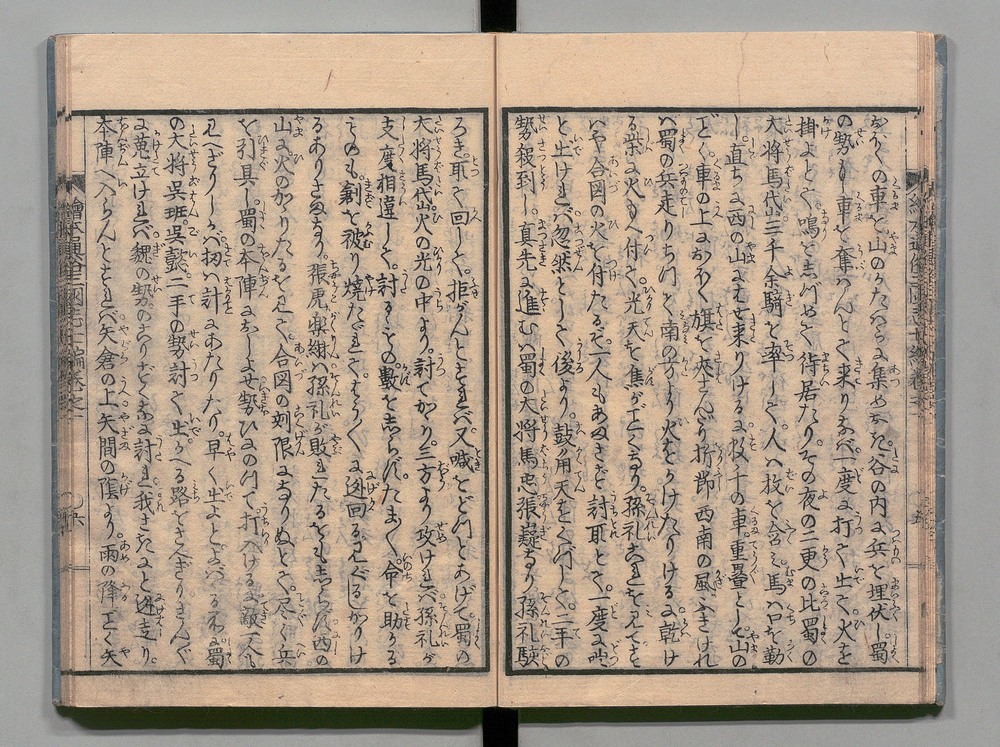 おくの車を山のかたはらに集めさせ谷の内に兵を埋伏し蜀
の勢もし車を奪はんとて来りなバ一度に打て出て火を
掛よとて鳴をしづめて待居たりその夜の二更の比蜀の
大将馬岱三千余騎を率して人ハ枚を含ミ馬ハ口を勒
し直ちに西の山にはせ来りけるに数千の車重畳として山の
ごとく車の上におほく旗を夾さんだり折節西南の風ふきけれ
バ蜀の兵走りちつて南の方より火をかけたりけるに乾け
る柴に火もへ付て光天を焦がすごとくなり孫礼これを見てさ
ハや合図の火を付たるぞ一人もあまさず討取とて一度に
と出けれバ忽然として後より鼓角天をくづして二手の
勢殺到し真先に進むハ蜀の大将馬忠張嶷なり孫礼駭
ろき取て回して拒がんとすれバ又喊をどつとあげて蜀の
大将馬岱火の光の中より討てかゝり三方より攻けれバ孫礼が
支度相違して討るゝもの数をしらずたまく命を助かる
ものも創を被り焼たゞれてはうくに逃回る見ぐるしかりけ
るありさまなり張虎楽綝ハ孫礼が敗れたるをもしらず西の
山に火のかゝりたるを見て合図の刻限になりぬとて尽く兵
を引具し蜀の本陣におしよせ勢ひ四つの門に打入けるに敵一人も
見へざりしかバ扨ハ計にあたりたり早く出よとよバゝる所に蜀
の大将呉班呉懿二手の勢討て出かへる路をさへぎりさんぐ
に蒐立けれバ魏の勢のこりずくなに討れ我さきにと逃走り
本陣へ入らんとすれバ矢倉の上矢間の陰より雨の降ごとく矢